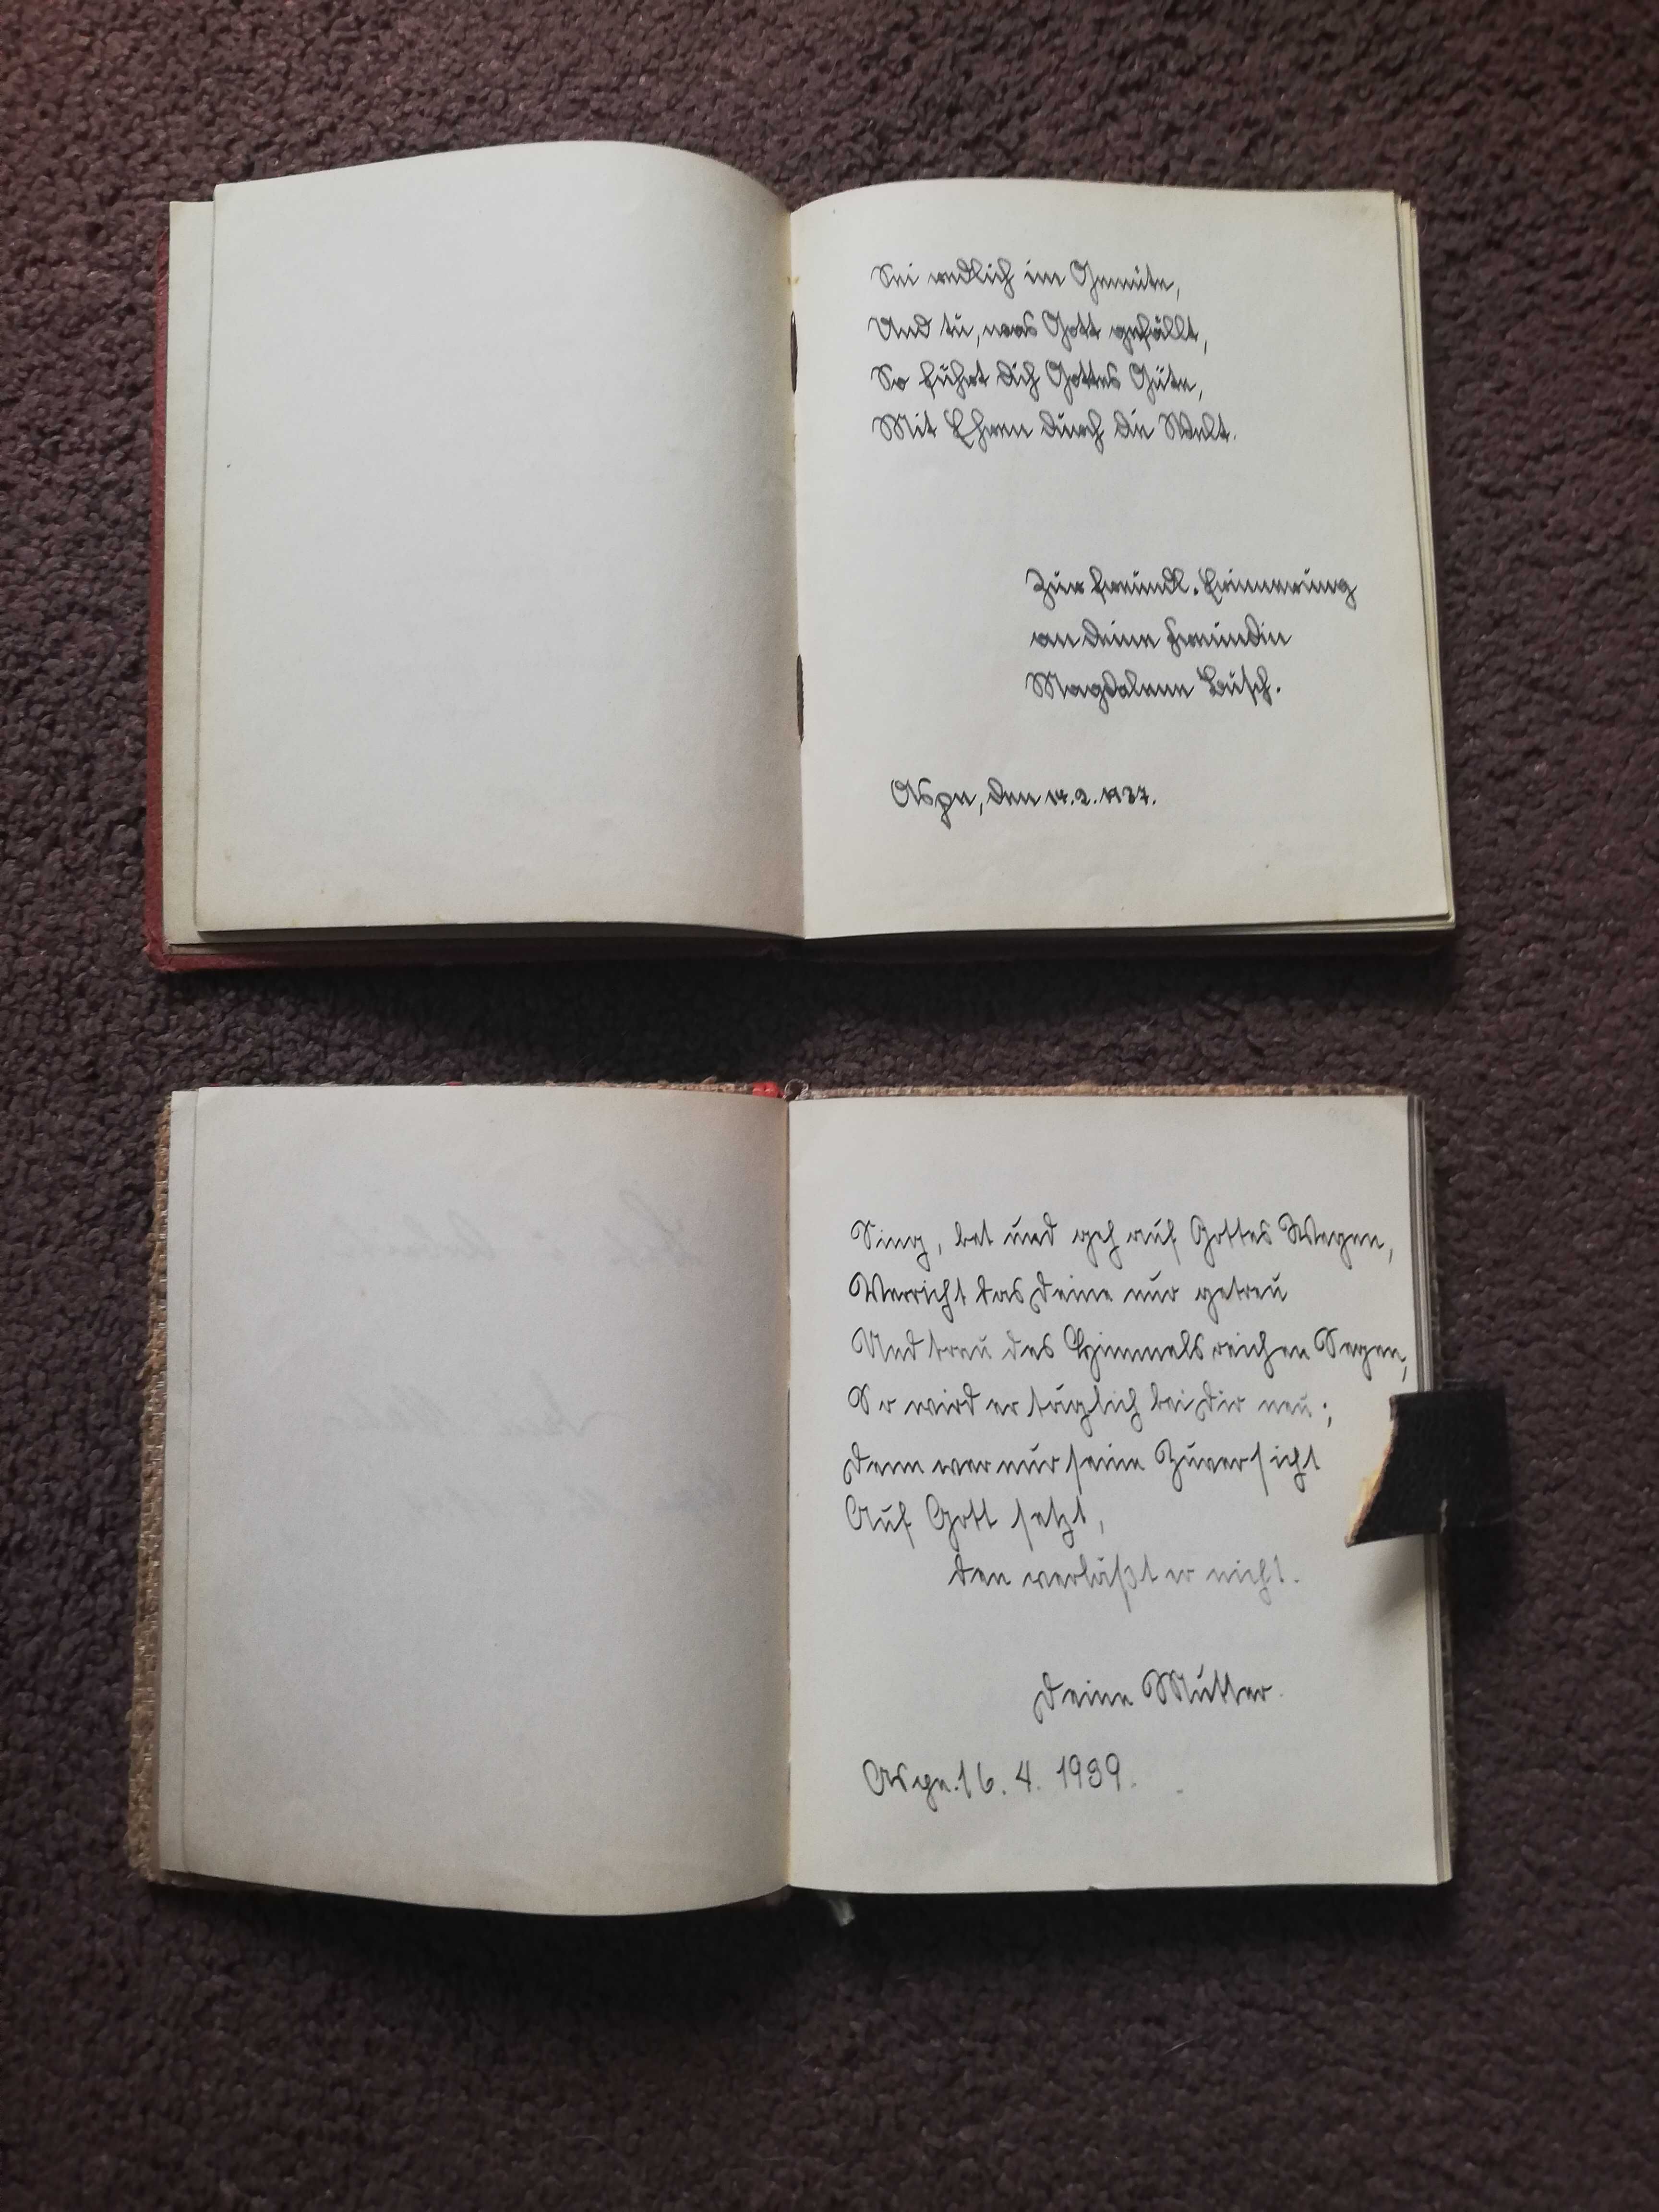 Sei redlich im Gemüte,
Und tu, was Gott gefällt,
So führt dich Gottes Güte,
Mit Ehren durch die Welt.
Zur freundl. Erinnerung
an deine Freundin
Magdalene Busch.
Aspe, den 14.2.1937.
Sing, bet und geh auf Gottes Wegen,
Verricht das Deine nur getreu
Und trau des Himmels reichen Segen,
So wird er täglich bei Dir neu;
Denn wer nur seine Zuversicht
Auf Gott setzt,
den verläßt er nicht.
Deine Mutter.
Aspe. 16. 4. 1939.